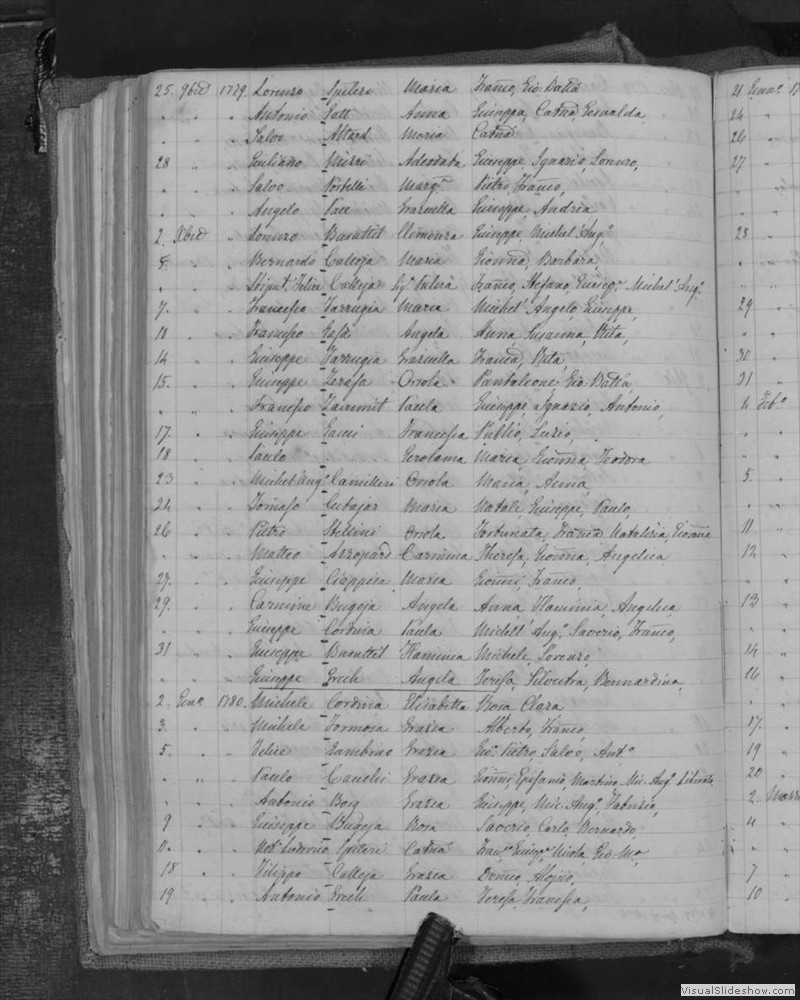 25. 9bre 1779. Lorenzo Spiteri Maria Franco, Gio Batta
" " " Antonio Galt Anna Giuseppe, Catna, Esevalda,
" " " Salvo Attard Maria Catna
28 " " Giuliano Mizzi Adeodata Giuseppe, Ignazio, Lorenzo,
" " " Salvo Portelli Marga Pietro, Franco,
" " " Angelo Pace Graziella Giuseppe, Andrea
2. Xbre " Lorenzo Barattit Clemenza Giuseppe, Michel Ango
5. " " Bernardo Calleja Maria Gionna, Barbara
" " " Felice Calleja Franco, Stefano, Giusepe Michel' Ango
7. " " Francesco Farrugia Maria Michel' Angelo, Giuseppe,
10 " " Francesco Angela Anna Susanna, Vita,
14 " " Giuseppe Farrugia Graziella Franca, Vita,
15. " " Giuseppe Zerafa Orsola Pantaleone, Gio Batta,
" " " Francesco Zammit Paula Giuseppe, Ignazio, Antonio,
17. " " Giuseppe Gauci Francesca Publio, Luzio,
18 " " Paulo " Gerolama Maria, Gionna, Teodora
23 " " Michel'Ango Camilleri Orsola Maria, Anna,
24 " " Tomaso Cutajar Maria Natale, Giuseppe, Paulo,
26 " " Pietro Stellini Orsola Fortunata, Franca, Natalizia, Gionna
" " " Matteo Azzopard Carmina Theresa, Gionna, Angelica
27. " " Giuseppe Ciappisa Maria Gionni, Franco,
29. " " Carmine Bugeja Angela Anna Flaminia, Angelica
" " " Giuseppe Cordina Paula Michel' Ango, Saverio, Franco,
31 " " Giuseppe Barattit Flaminia Michele, Lorenzo,
" " " Giuseppe Grech Angela Teresa, Silvestra, Bennardina,
2. Genn 1780. Michele Cordina Elisabetta Rosa Clara
3. " " Michele Formosa Grazia Alberto, Franco,
5. " " Felice Zambrino Grazia Gio. Pietro, Salvo, Anto
" " " Paulo Cauchi Grazia Gionni, Epifanio, Martino, Mic. Ango, Liberato,
" " " Antonio Borg Grazia Giuseppe, Mic. Ango, Fabrizio,
9 " " Giuseppe Bugeja Rosa Saverio, Carlo, Bernardo
11. " " Not. Ludovico Spiteri Catna Franco, Giusepe, Nicola, Gio. Ma,
18 " " Filippo Calleja Grazia Domco, Alojsio,
19 " " Antonio Grech Paula Teresa, Francesca,
21 Genn. 17
24 "
26 "
27 "
28 "
29 "
30 "
31 "
4 Febo
5 "
11 "
12 "
13 "
14 "
16 "
17. "
19 "
20 "
2. Marz
4 "
7 "
10 "
VisualSlideshow.com